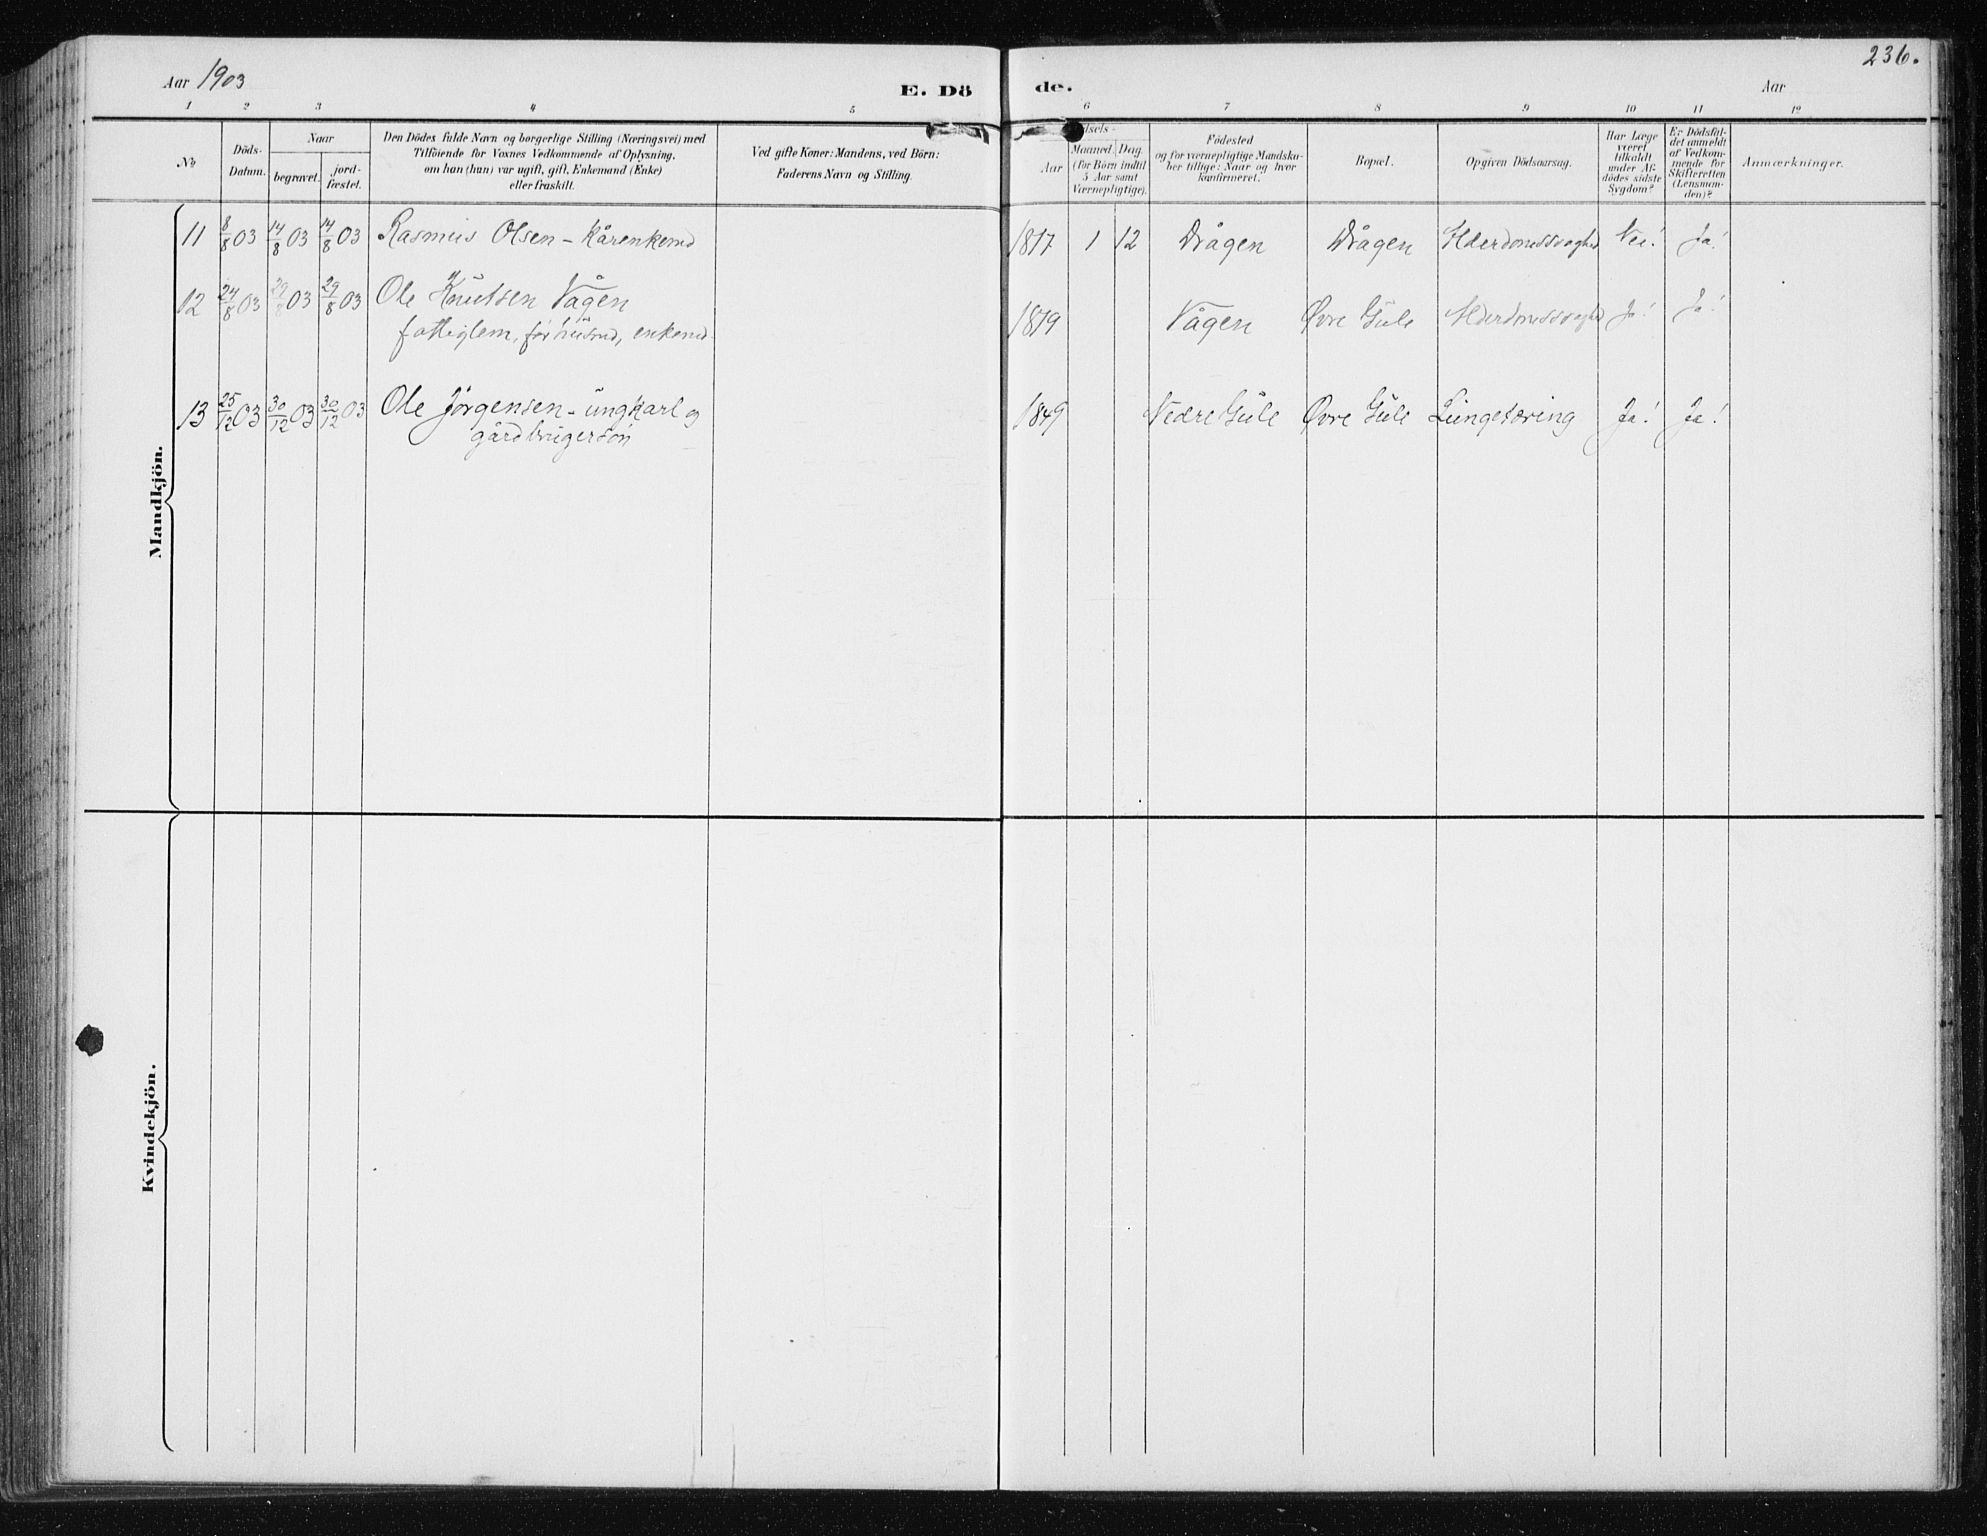 Aar 1903
E. Dö de.
Aar
236.
1 2 3 4 5 6 7 8 9 10 11 12
No
Döds-
Datum.
Naar
begravet.
jord-
fæstet.
Den Dödes fulde Navn og borgerlige Stilling (Næringsvei) med
Tilföiende for Voxnes Vedkommende af Oplysning,
om han (hun) var ugift, gift, Enkemand (Enke)
eller fraskilt.
Ved gifte Koner: Mandens, ved Börn:
Faderens Navn og Stilling.
dsels-
Aar
Maaned. Dag.
(for Börn indtil
5 Aar samt
Værnepligtige).
Födested
og for værnepligtige Mandska-
ber tillige: Naar og hvor
konfirmeret.
Bopæl.
Opgiven Dödsaarsag.
Har Læge
været
tilkaldt
under Af-
dödes sidste
Sygdom?
Er Dödsfal-
det anmeldt
af Vedkom-
mende for
Skifteretten
(Lensman-
den)?
Anmærkninger.
Mandkjön.
11 8/8 03 14/8 03 14/8 03 Rasmus Olsen - kårenkemd 1817 1 12 Drågen Drågen Alderdomssvaghed Nei! Ja!
12 24/8 03 29/8 03 29/8 03 Ole Knutsen Vågen 1819 Vågen Øvre Gule Alderdomssvaghed Ja! Ja!
fattiglem, før husmd, enkemd
13 25/12 03 30/12 03 30/12 03 Ole Jørgensen - ungkarl og 1849 Nedre Gule Øvre Gule Lungetæring Ja! Ja!
gårdbrugersøn
Kvindekjön.